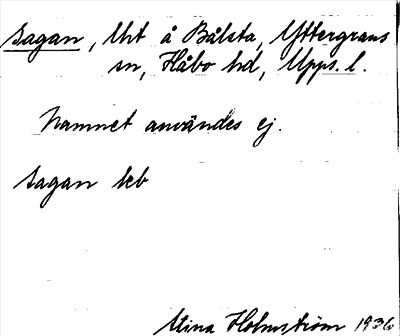 Sagan, Uht å Bålsta, Yttergrans
sn, Håbo hd, Upps. l.
Namnet användes ej.
Sagan leb
Mina Holmström 1936